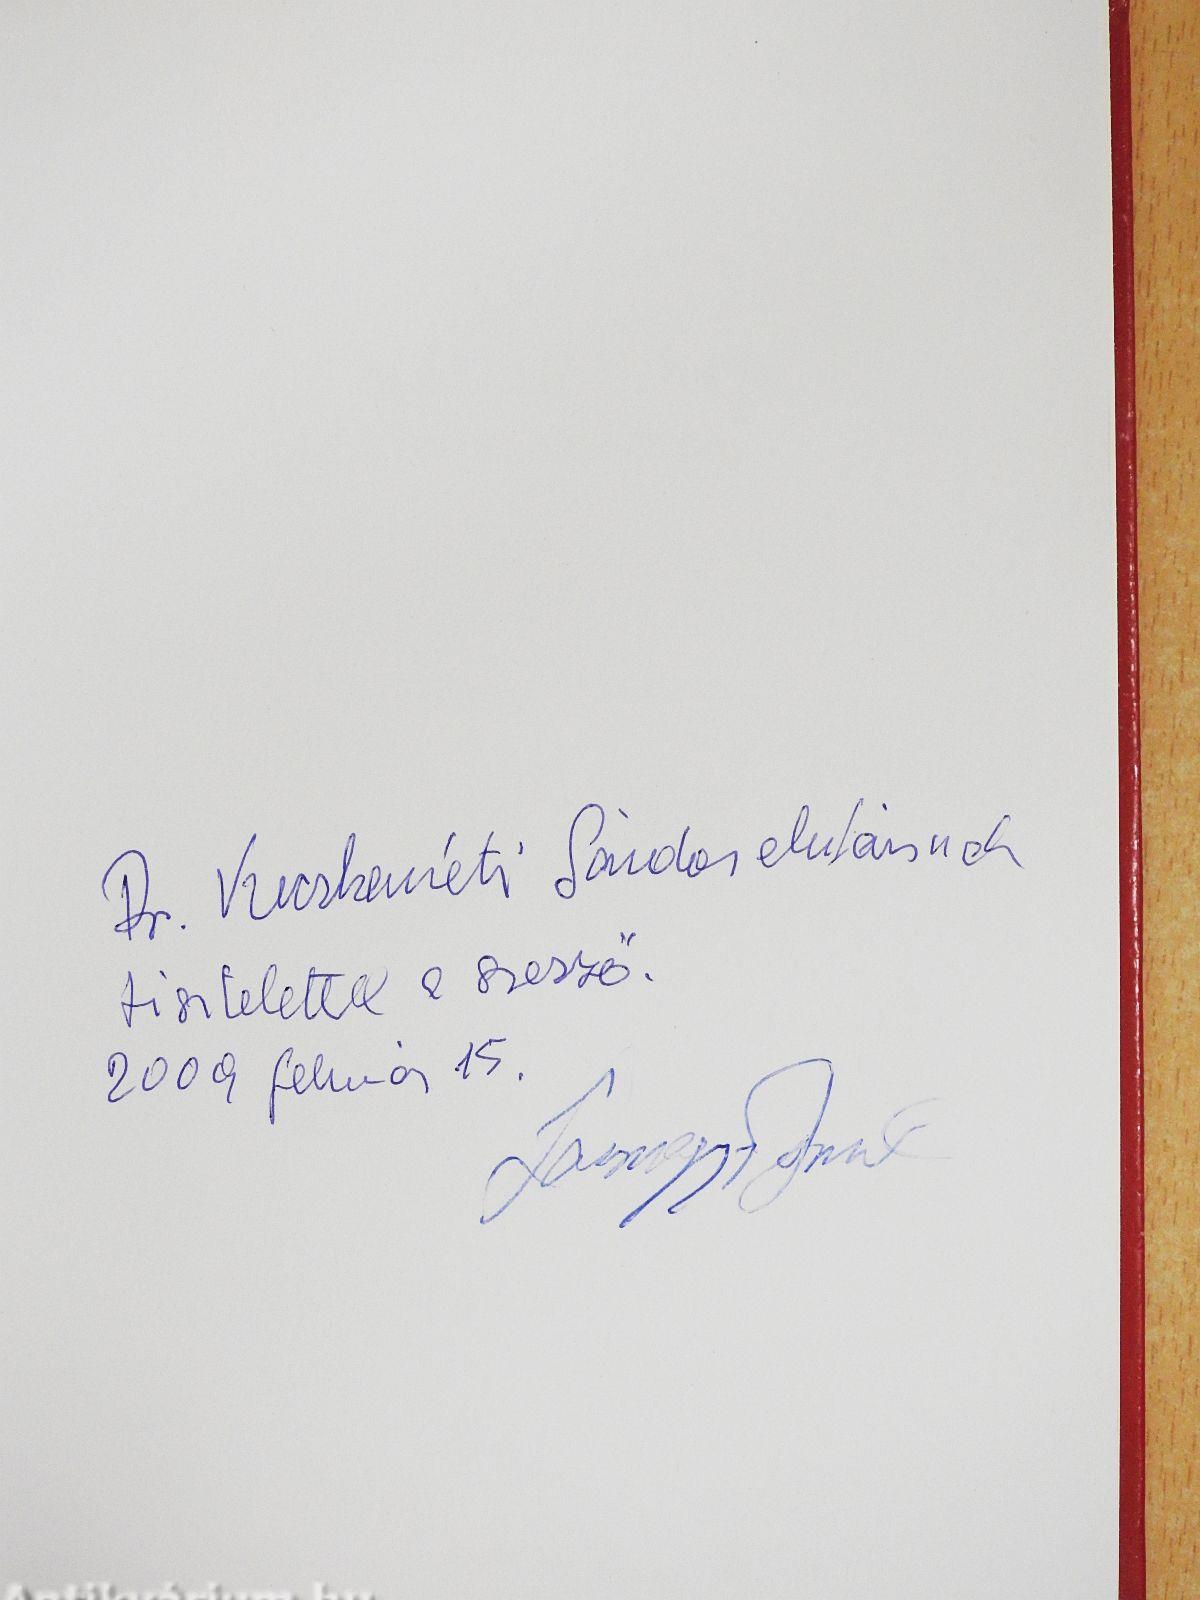 Dr. Kecskeméti Sándor elvtársnak
tisztelettel a szerző.
2009 február 15.
Antikvárium.hu